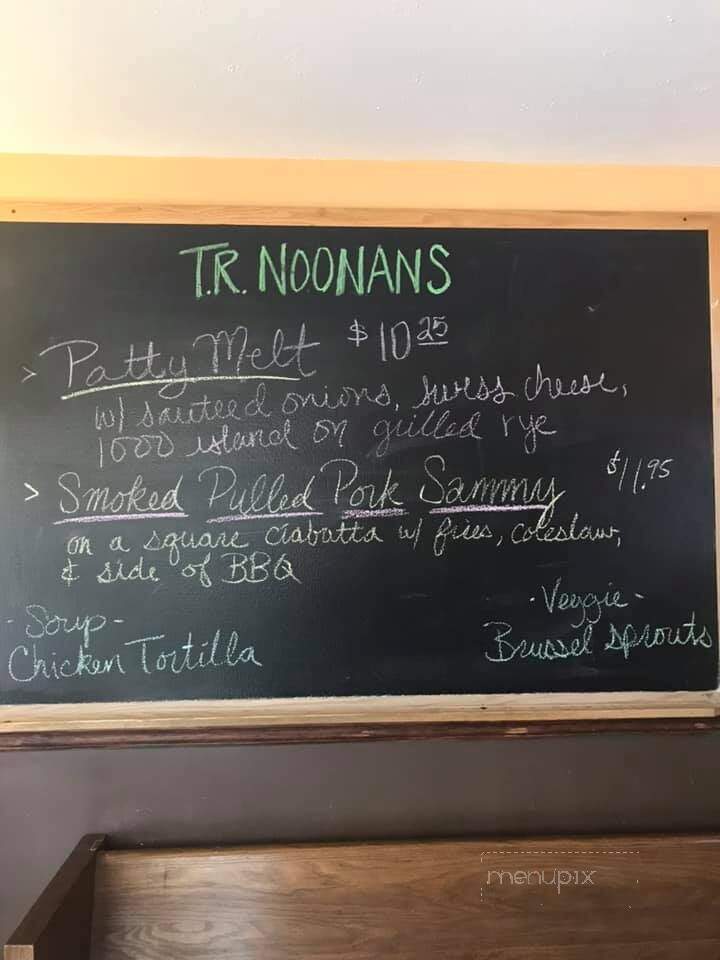 T.R. NOONANS
> Patty Melt $10 25
w/ sauteed onions, swiss cheese,
1000 island on grilled rye
> Smoked Pulled Pork Sammy $11.95
on a square ciabatta w/ fries, coleslaw,
& side of BBQ
- Soup -
Chicken Tortilla
- Veggie -
Brussel Sprouts
menupix